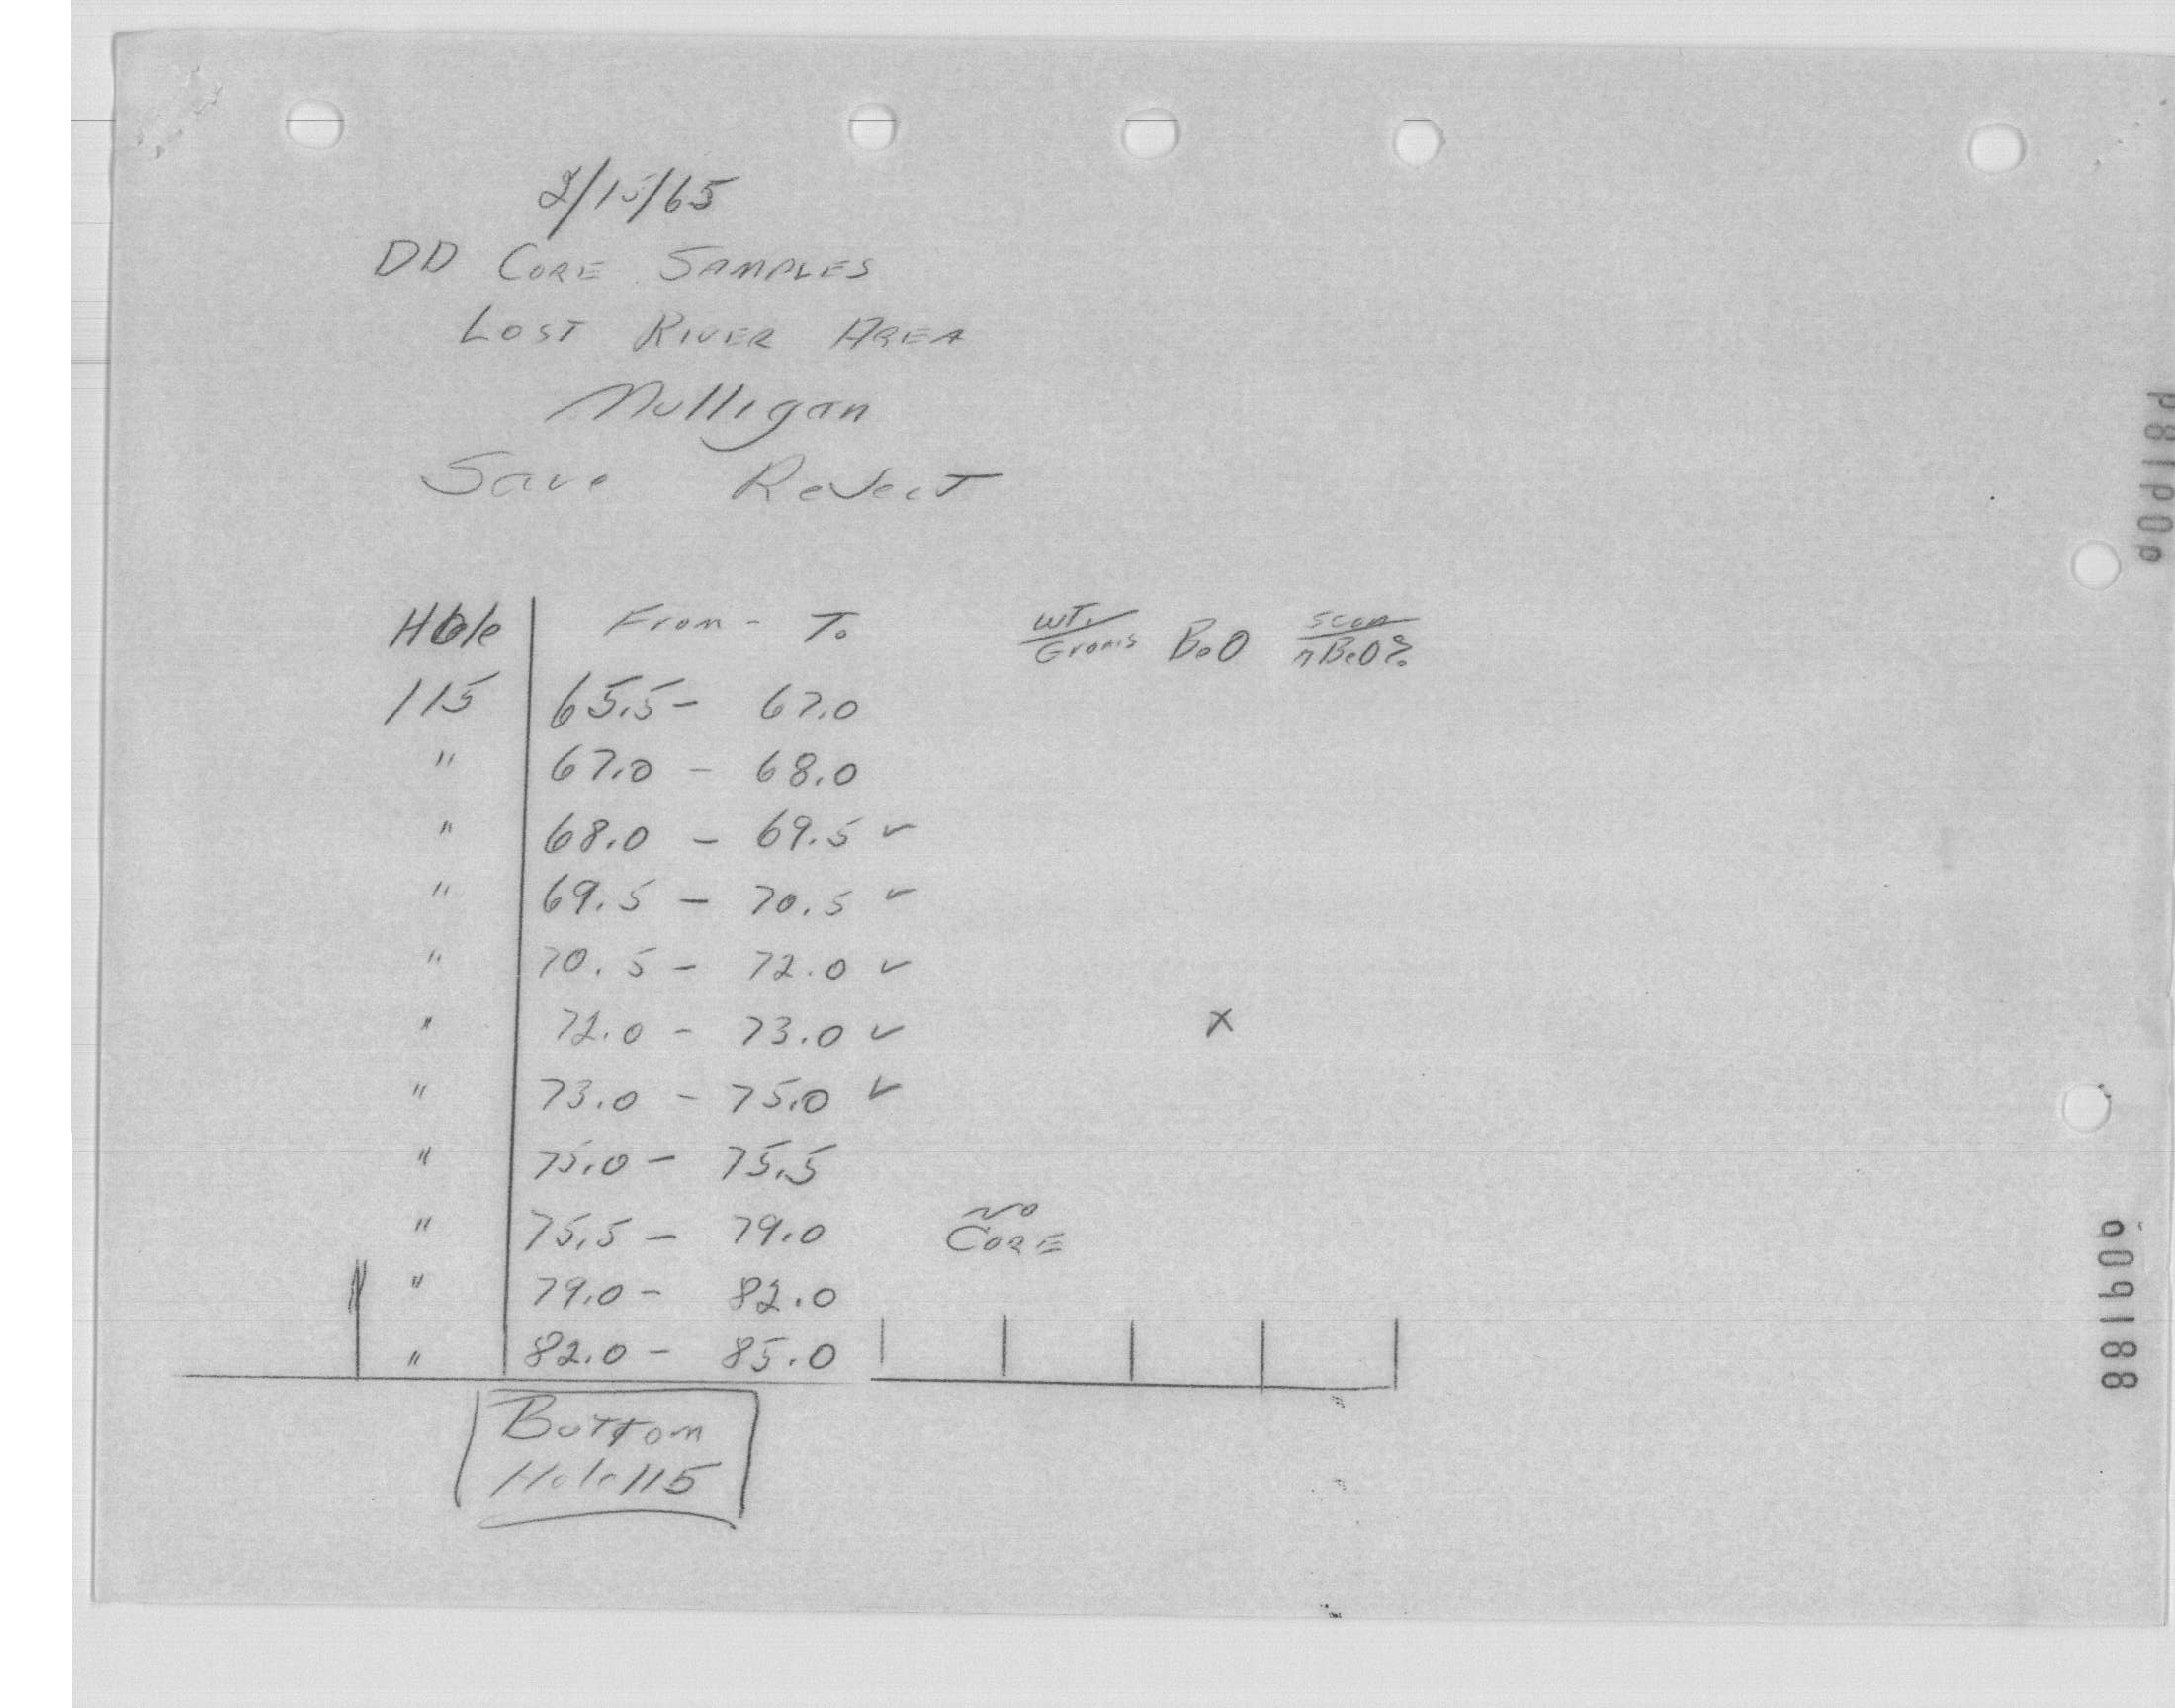 2/15/65
DD CORE SAMPLES
LOST RIVER AREA
Mulligan
Save Reject
Hole From - To wT. Grams BeO scan BeO%
115 65.5 - 67.0
" 67.0 - 68.0
" 68.0 - 69.5 ✓
" 69.5 - 70.5 ✓
" 70.5 - 72.0 ✓
" 72.0 - 73.0 ✓ x
" 73.0 - 75.0 ✓
" 75.0 - 75.5
" 75.5 - 79.0 NO CORE
" 79.0 - 82.0
" 82.0 - 85.0
Bottom
Hole 115